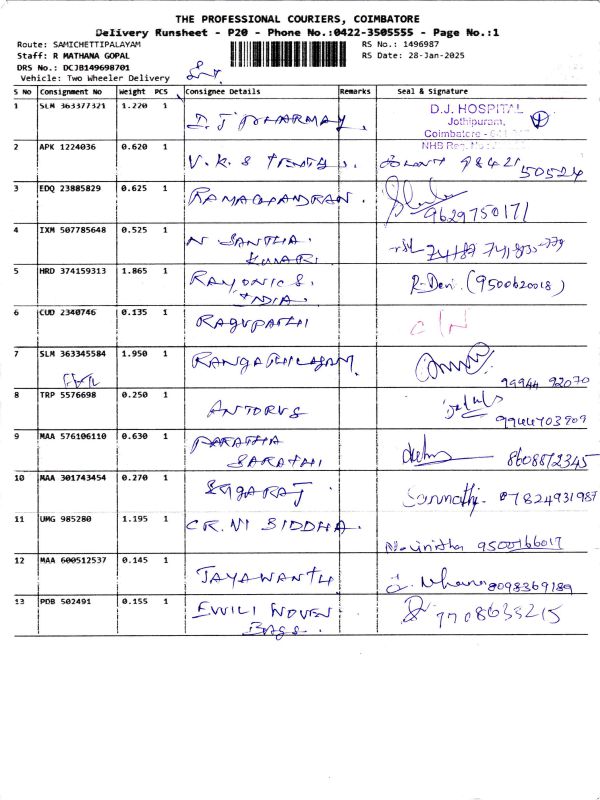 THE PROFESSIONAL COURIERS, COIMBATORE
Delivery Runsheet - P20 - Phone No.:0422-3505555 - Page No.:1
Route: SAMICHETTIPALAYAM
RS No.: 1496987
Staff: R MATHANA GOPAL
RS Date: 28-Jan-2025
DRS No.: DCJB149698701
Vehicle: Two Wheeler Delivery
S No Consignment No Weight PCS Consignee Details Remarks Seal & Signature
1 SLM 363377321 1.220 1 D.J PHARMAY.
D.J. HOSPITAL
Jothipuram,
Coimbatore - 641
NHB Reg. No
2 APK 1224036 0.620 1 V.K.S 98421 50524
3 EDQ 23885829 0.625 1 RAMACHANDRAN. 9629750171
4 IXM 507785648 0.525 1 N SANTHA.
KUMARI
5 HRD 374159313 1.865 1 RAYONICS. R.Devi (9500620018)
INDIA.
6 CUD 2340746 0.135 1 RAGUPATHI C/N
7 SLM 363345584 1.950 1 99944 92070
8 TRP 5576698 0.250 1 ANTORUS 9944703909
9 MAA 576106110 0.630 1 PARATHA
SARATHI 8608872345
10 MAA 301743454 0.270 1 07824931987
11 UMG 985280 1.195 1 SIDDHA.
9500166017
12 MAA 600512537 0.145 1 JAYAWANTH 8098369189
13 PDB 502491 0.155 1 WOVEN 7708633215
BAGS.